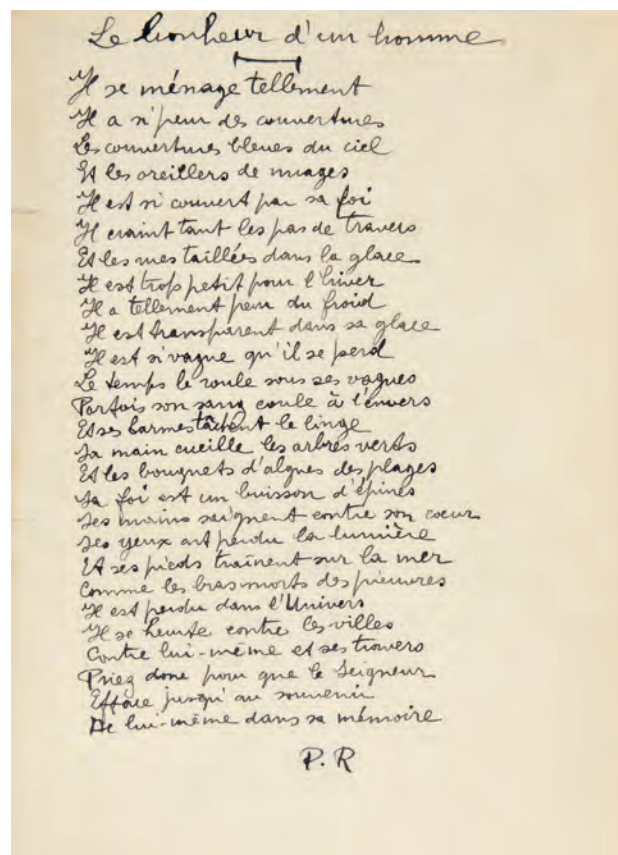 Le bonheur d'un homme
Il se ménage tellement
Il a si peur des couvertures
Les couvertures bleues du ciel
Et les oreillers de nuages
Il est si couvert par sa foi
Il craint tant les pas de travers
Et les rues taillées dans la glace
Il est trop petit pour l'hiver
Il a tellement peur du froid
Il est transparent dans sa glace
Il est si vague qu'il se perd
Le temps le roule sous ses vagues
Parfois son sang coule à l'envers
Et ses larmes tâchent le linge
Sa main cueille les arbres verts
Et les bouquets d'algues des plages
Sa foi est un buisson d'épines
Ses mains saignent contre son coeur
Ses yeux ont perdu la lumière
Et ses pieds traînent sur la mer
Comme les bras morts des pieuvres
Il est perdu dans l'Univers
Il se heurte contre les villes
Contre lui-même et ses travers
Priez donc pour que le Seigneur
Efface jusqu'au souvenir
De lui-même dans sa mémoire
P. R